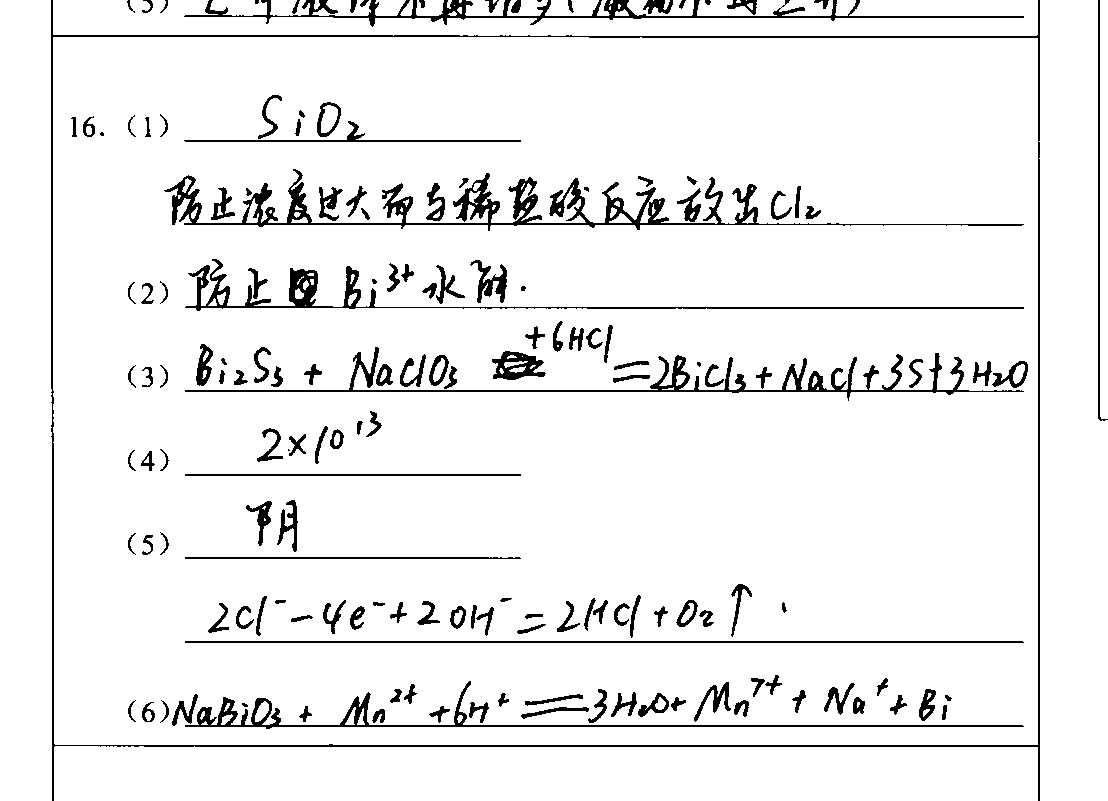 (5)
16.(1) SiO₂
防止浓度过大而与稀盐酸反应放出Cl₂
(2) 防止Bi³⁺水解.
(3) Bi₂S₃ + NaClO₃ +6HCl =2BiCl₃+NaCl+3S+3H₂O
(4) 2×10¹³
(5) 阴
2Cl⁻-4e⁻+2OH⁻=2HCl+O₂↑
(6) NaBiO₃ + Mn²⁺ +6H⁺ =3H₂O+ Mn⁷⁺ + Na⁺ + Bi